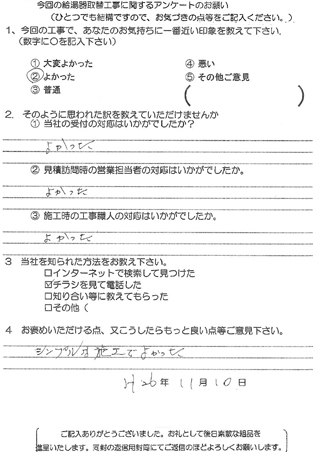 今回の給湯器取替工事に関するアンケートのお願い
(ひとつでも結構ですので、お気づきの点等をご記入ください。)
1、今回の工事で、あなたのお気持ちに一番近い印象を教えて下さい。
(数字に○を記入下さい)
① 大変よかった ④ 悪い
② よかった ⑤ その他ご意見
③ 普通 ( )
2. そのように思われた訳を教えていただけませんか
① 当社の受付の対応はいかがでしたか?
よかった
② 見積訪問時の営業担当者の対応はいかがでしたか。
よかった
③ 施工時の工事職人の対応はいかがでしたか。
よかった
3 当社を知られた方法をお教え下さい。
□インターネットで検索して見つけた
☑チラシを見て電話した
□知り合い等に教えてもらった
□その他(
4 お褒めいただける点、又こうしたらもっと良い点等ご意見下さい。
シンプルな施工でよかった
H26年 11月10日
ご記入ありがとうございました。お礼として後日素敵な粗品を
進呈いたします。同封の返信用封筒にてご返信のほどよろしくお願いします。